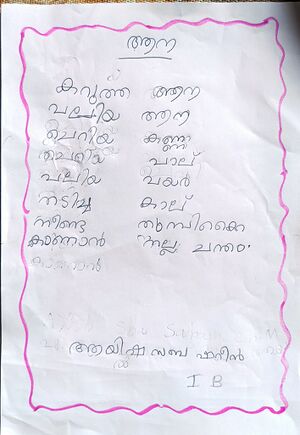 ആന
കറുത്ത ആന
വലിയ ആന
ചെറിയ കണ്ണ്
വലിയ വയർ
തടിച്ച കാല്
നീണ്ട തുമ്പിക്കൈ
കാണാൻ നല്ല ചന്തം.
ആയിഷ സബ ഷറിൻ
I B